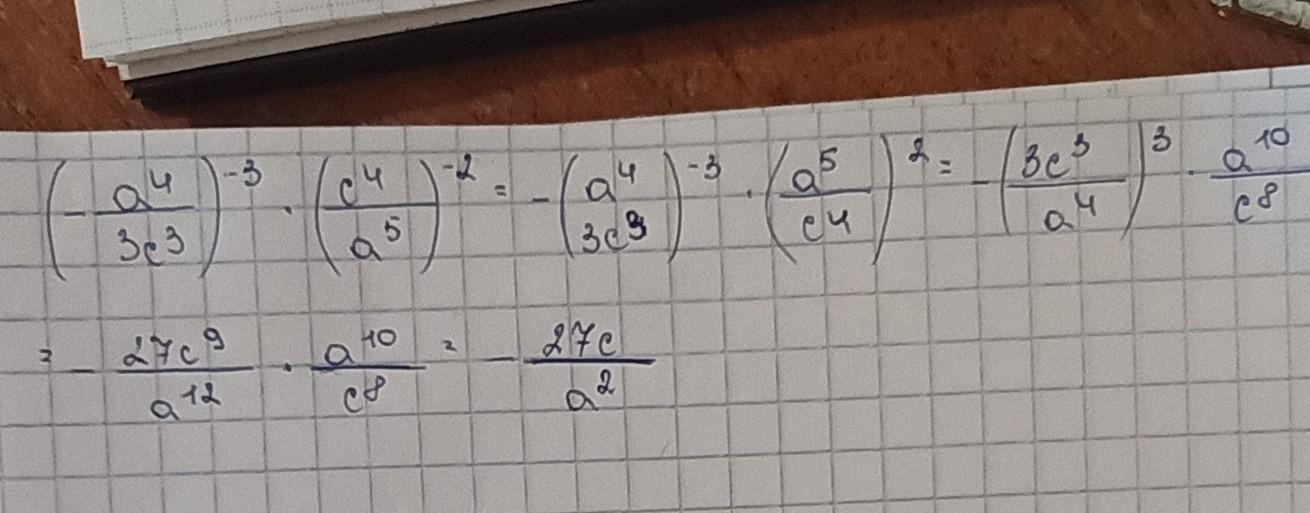 (-a⁴/3c³)⁻³ · (c⁴/a⁵)⁻² = -(a⁴/3c³)⁻³ · (a⁵/c⁴)² = -(3c³/a⁴)³ · a¹⁰/c⁸
= -27c⁹/a¹² · a¹⁰/c⁸ = -27c/a²